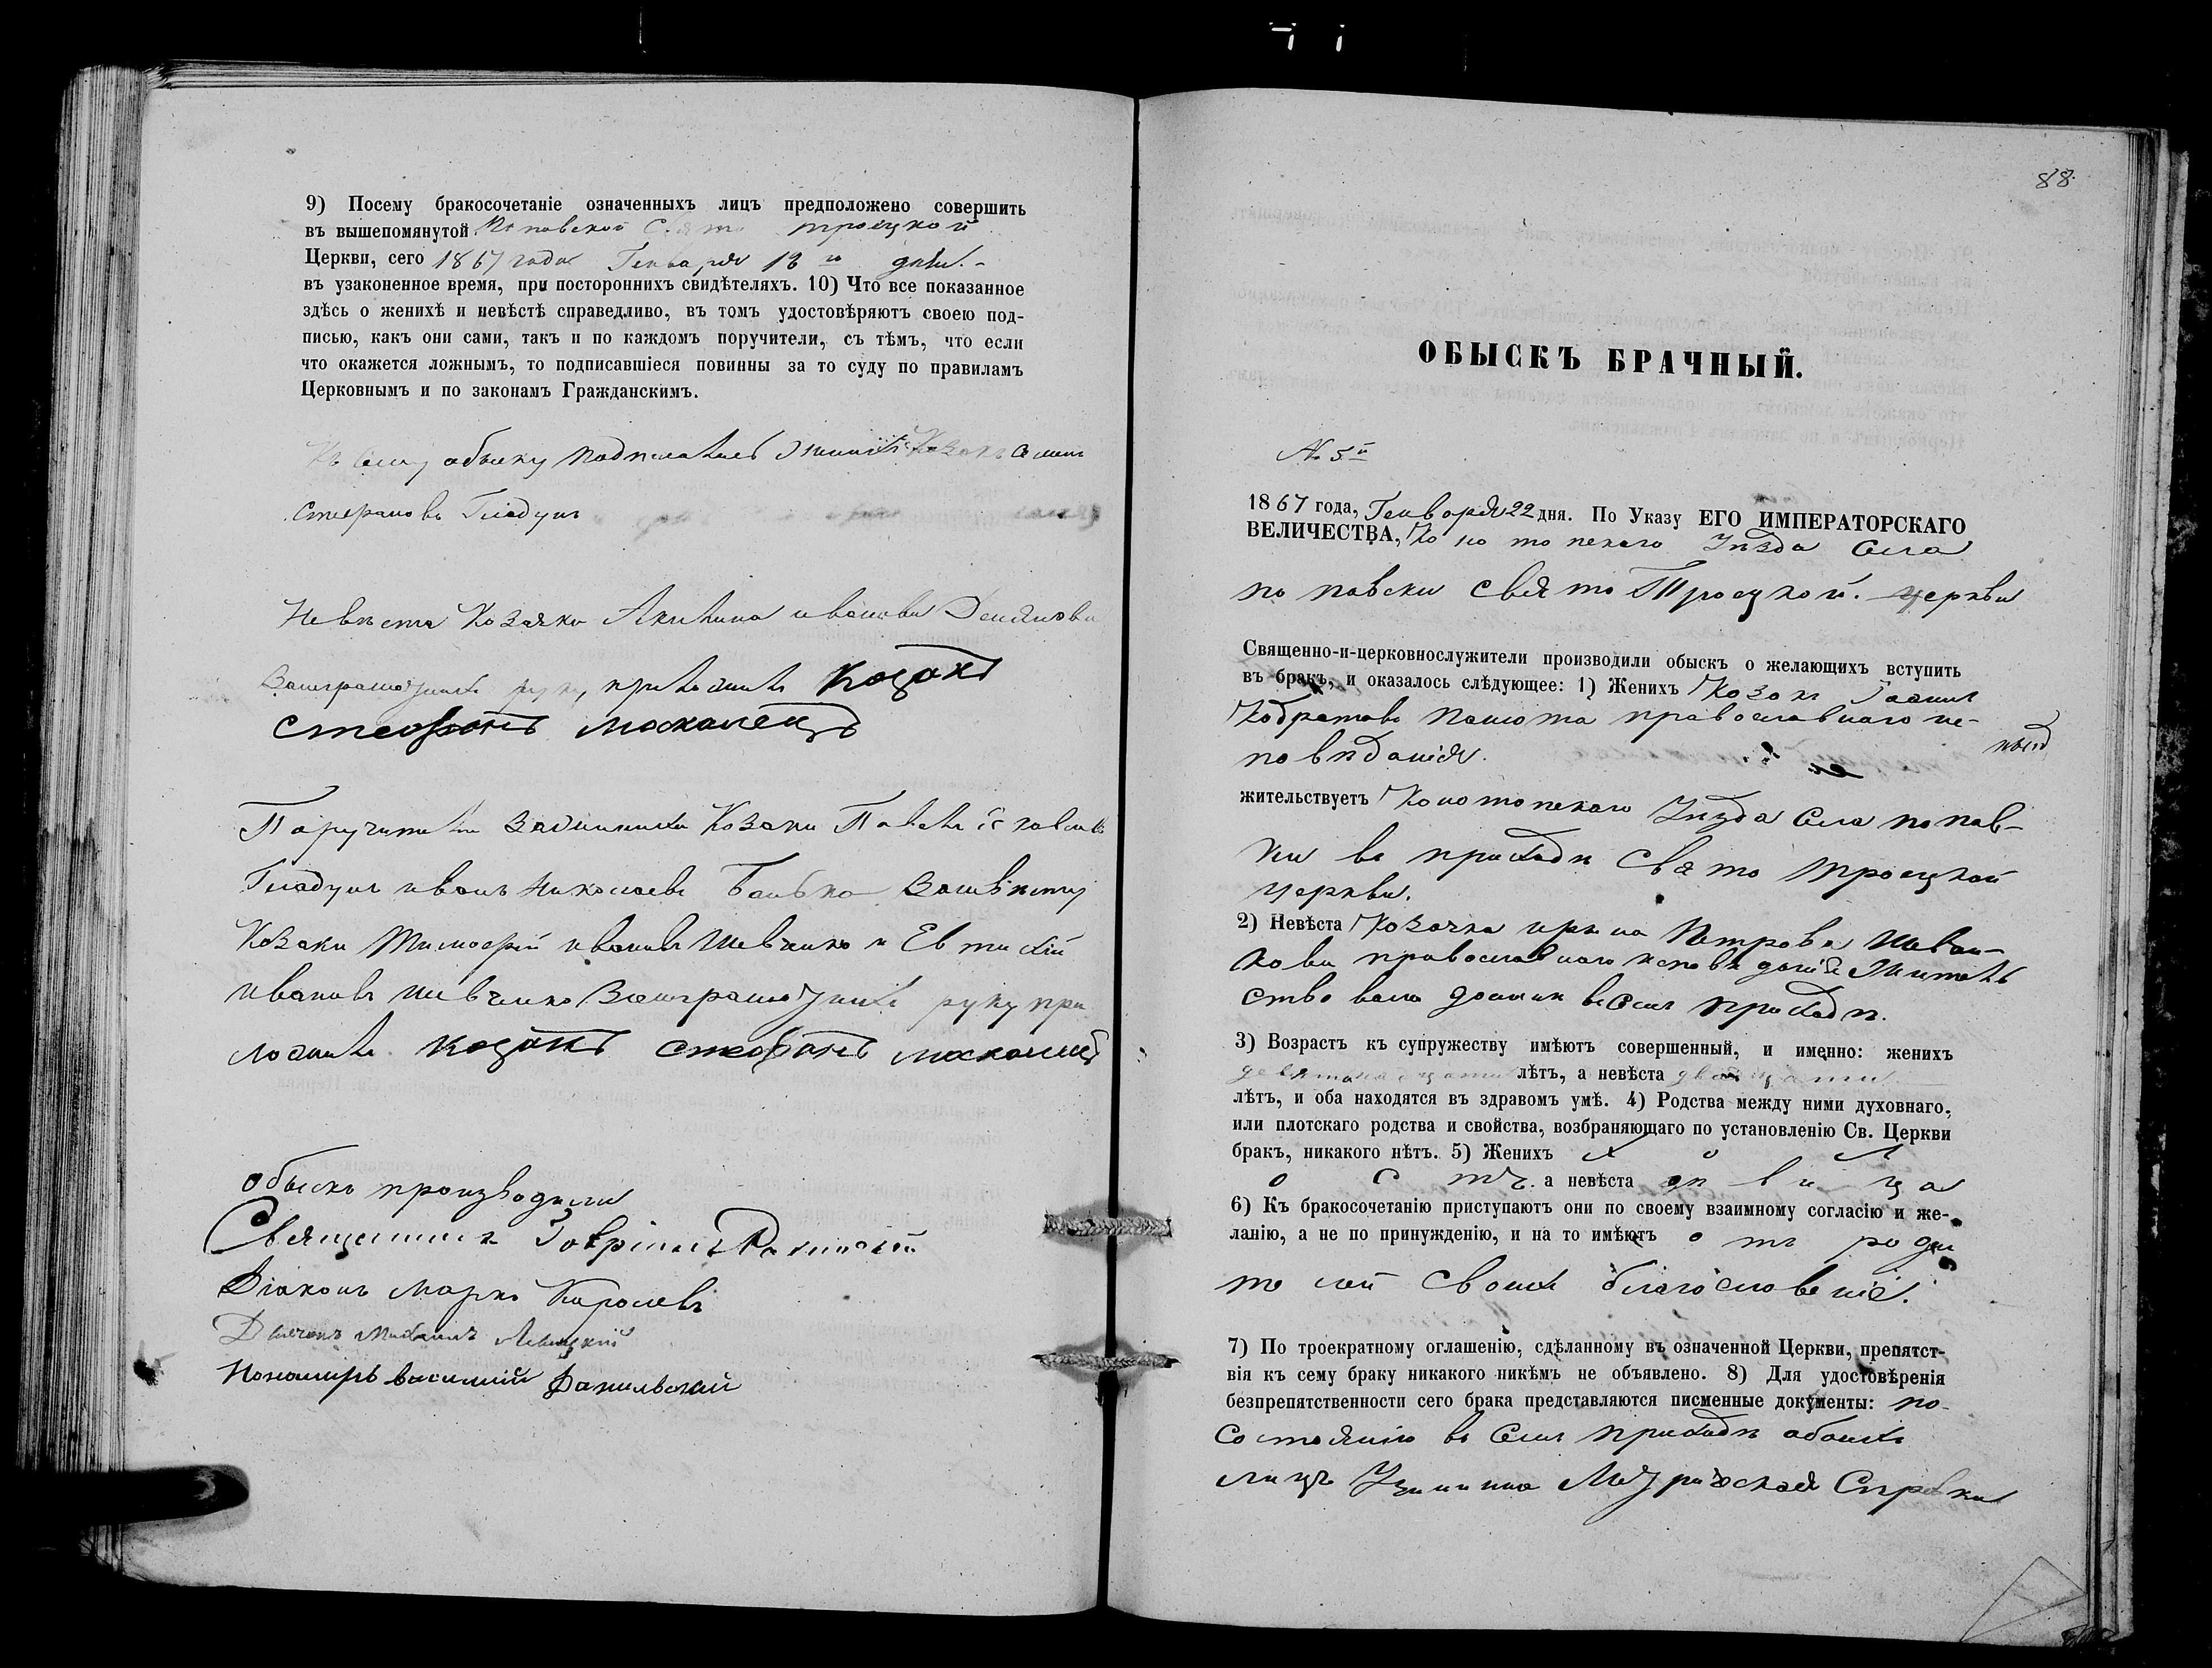 9) Посему бракосочетаніе означенныхъ лицъ предположено совершить
въ вышепомянутой Поповской Свято Троецкой
Церкви, сего 1867 года Генваря 13 го дня.
въ узаконенное время, при постороннихъ свидѣтеляхъ. 10) Что все показанное
здѣсь о женихѣ и невѣстѣ справедливо, въ томъ удостовѣряютъ своею под-
писью, какъ они сами, такъ и по каждомъ поручители, съ тѣмъ, что если
что окажется ложнымъ, то подписавшіеся повинны за то суду по правиламъ
Церковнымъ и по законамъ Гражданскимъ.
Къ сему обыску подписались Женихъ Козакъ
Стефановъ Гладунъ
Невѣста Козачка Акилина иванова
руку приложилъ Козакъ
стефанъ москалецъ
Поручители Козаки Павелъ
Гладунъ иванъ Николаевъ
Козаки Тимофей ивановъ Шевченко и Евтихій
ивановъ шевченко руку при
ложилъ козакъ стефанъ москалецъ
обыскъ производили
Священникъ Гавріилъ
Діаконъ Марко
Дьячокъ Михаилъ Левицкій
Пономарь василий
88.
ОБЫСКЪ БРАЧНЫЙ.
№ 5й
1867 года, Генваря 22 дня. По Указу ЕГО ИМПЕРАТОРСКАГО
ВЕЛИЧЕСТВА, Конотопскаго Уѣзда Села
поповки свято Троецкой церкви
Священно-и-церковнослужители производили обыскъ о желающихъ вступить
въ бракъ, и оказалось слѣдующее: 1) Женихъ Козакъ
Кодратовъ православнаго ис-
повѣданія.
жительствуетъ Конотопскаго Уѣзда Села попов-
ки въ приходѣ Свято Троецкой
церкви.
2) Невѣста Козачка ирина Петрова
кова православнаго исповѣданія Житель
ство въ семъ приходѣ.
3) Возрастъ къ супружеству имѣютъ совершенный, и именно: женихъ
девятнадцати лѣтъ, а невѣста двадцати
лѣтъ, и оба находятся въ здравомъ умѣ. 4) Родства между ними духовнаго,
или плотскаго родства и свойства, возбраняющаго по установленію Св. Церкви
бракъ, никакого нѣтъ. 5) Женихъ х о л
о с тъ. а невѣста дѣвица
6) Къ бракосочетанію приступаютъ они по своему взаимному согласію и же-
ланію, а не по принужденію, и на то имѣютъ отъ роди
телей своихъ благословеніе.
7) По троекратному оглашенію, сдѣланному въ означенной Церкви, препятст-
вія къ сему браку никакого никѣмъ не объявлено. 8) Для удостовѣренія
безпрепятственности сего брака представляются писменные документы: по
состоянію въ семъ приходѣ обоихъ
лицъ Учинина Метрическая Справка